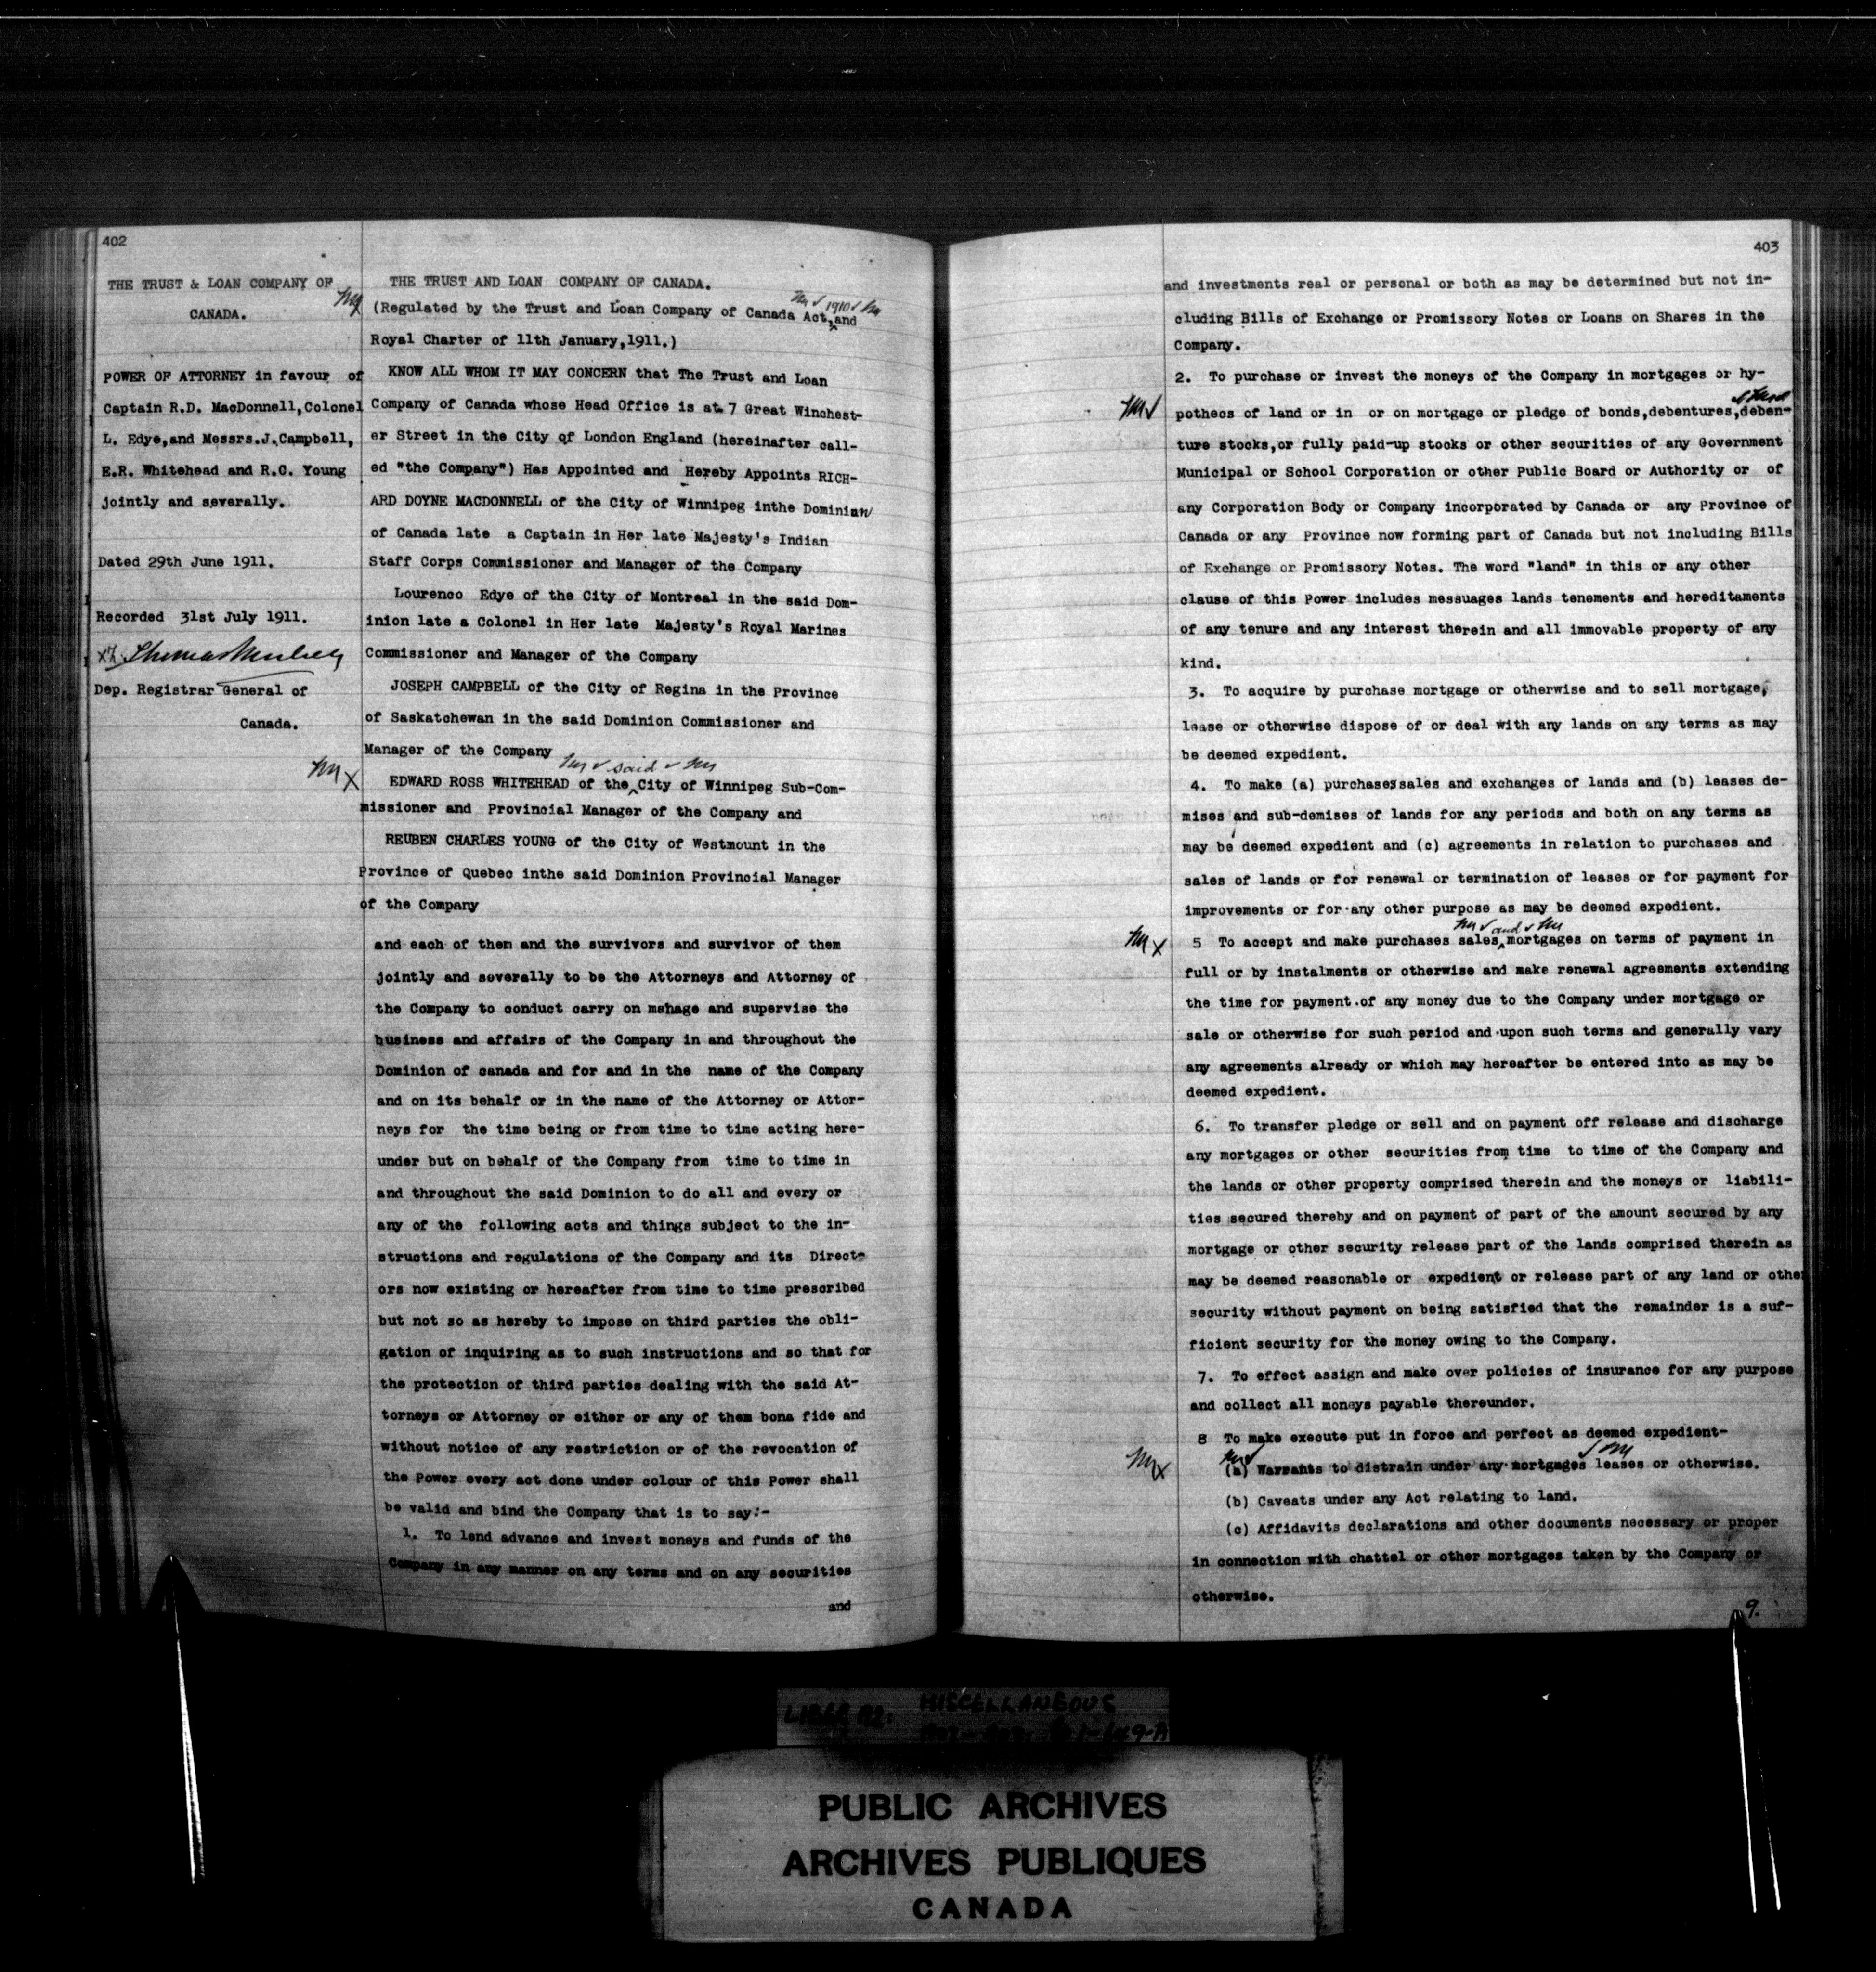 402
THE TRUST & LOAN COMPANY OF
CANADA.
POWER OF ATTORNEY in favour of
Captain R.D. MacDonnell,Colonel
L. Edye,and Messrs.J.Campbell,
E.R. Whitehead and R.C. Young
jointly and severally.
Dated 29th June 1911.
Recorded 31st July 1911.
Dep. Registrar General of
Canada.
THE TRUST AND LOAN COMPANY OF CANADA.
1910
(Regulated by the Trust and Loan Company of Canada Act,and
Royal Charter of 11th January,1911.)
KNOW ALL WHOM IT MAY CONCERN that The Trust and Loan
Company of Canada whose Head Office is at 7 Great Winchest-
er Street in the City of London England (hereinafter call-
ed "the Company") Has Appointed and Hereby Appoints RICH-
ARD DOYNE MACDONNELL of the City of Winnipeg inthe Dominian
of Canada late a Captain in Her late Majesty's Indian
Staff Corps Commissioner and Manager of the Company
Lourenco Edye of the City of Montreal in the said Dom-
inion late a Colonel in Her late Majesty's Royal Marines
Commissioner and Manager of the Company
JOSEPH CAMPBELL of the City of Regina in the Province
of Saskatchewan in the said Dominion Commissioner and
Manager of the Company
said
EDWARD ROSS WHITEHEAD of the City of Winnipeg Sub-Com-
missioner and Provincial Manager of the Company and
REUBEN CHARLES YOUNG of the City of Westmount in the
Province of Quebec inthe said Dominion Provincial Manager
of the Company
and each of them and the survivors and survivor of them
jointly and severally to be the Attorneys and Attorney of
the Company to conduct carry on mahage and supervise the
business and affairs of the Company in and throughout the
Dominion of canada and for and in the name of the Company
and on its behalf or in the name of the Attorney or Attor-
neys for the time being or from time to time acting here-
under but on behalf of the Company from time to time in
and throughout the said Dominion to do all and every or
any of the following acts and things subject to the in-
structions and regulations of the Company and its Direct-
ors now existing or hereafter from time to time prescribed
but not so as hereby to impose on third parties the obli-
gation of inquiring as to such instructions and so that for
the protection of third parties dealing with the said At-
torneys or Attorney or either or any of them bona fide and
without notice of any restriction or of the revocation of
the Power every act done under colour of this Power shall
be valid and bind the Company that is to say:-
1. To lend advance and invest moneys and funds of the
Company in any manner on any terms and on any securities
and
403
and investments real or personal or both as may be determined but not in-
cluding Bills of Exchange or Promissory Notes or Loans on Shares in the
Company.
2. To purchase or invest the moneys of the Company in mortgages or hy-
pothecs of land or in or on mortgage or pledge of bonds,debentures,deben-
ture stocks,or fully paid-up stocks or other securities of any Government
Municipal or School Corporation or other Public Board or Authority or of
any Corporation Body or Company incorporated by Canada or any Province of
Canada or any Province now forming part of Canada but not including Bills
of Exchange or Promissory Notes. The word "land" in this or any other
clause of this Power includes messuages lands tenements and hereditaments
of any tenure and any interest therein and all immovable property of any
kind.
3. To acquire by purchase mortgage or otherwise and to sell mortgage,
lease or otherwise dispose of or deal with any lands on any terms as may
be deemed expedient.
4. To make (a) purchases,sales and exchanges of lands and (b) leases de-
mises and sub-demises of lands for any periods and both on any terms as
may be deemed expedient and (c) agreements in relation to purchases and
sales of lands or for renewal or termination of leases or for payment for
improvements or for any other purpose as may be deemed expedient.
and
5 To accept and make purchases sales mortgages on terms of payment in
full or by instalments or otherwise and make renewal agreements extending
the time for payment of any money due to the Company under mortgage or
sale or otherwise for such period and upon such terms and generally vary
any agreements already or which may hereafter be entered into as may be
deemed expedient.
6. To transfer pledge or sell and on payment off release and discharge
any mortgages or other securities from time to time of the Company and
the lands or other property comprised therein and the moneys or liabili-
ties secured thereby and on payment of part of the amount secured by any
mortgage or other security release part of the lands comprised therein as
may be deemed reasonable or expedient or release part of any land or other
security without payment on being satisfied that the remainder is a suf-
ficient security for the money owing to the Company.
7. To effect assign and make over policies of insurance for any purpose
and collect all moneys payable thereunder.
8 To make execute put in force and perfect as deemed expedient-
(a) Warrants to distrain under any mortgages leases or otherwise.
(b) Caveats under any Act relating to land.
(c) Affidavits declarations and other documents necessary or proper
in connection with chattel or other mortgages taken by the Company or
otherwise.
9.
MISCELLANEOUS
PUBLIC ARCHIVES
ARCHIVES PUBLIQUES
CANADA